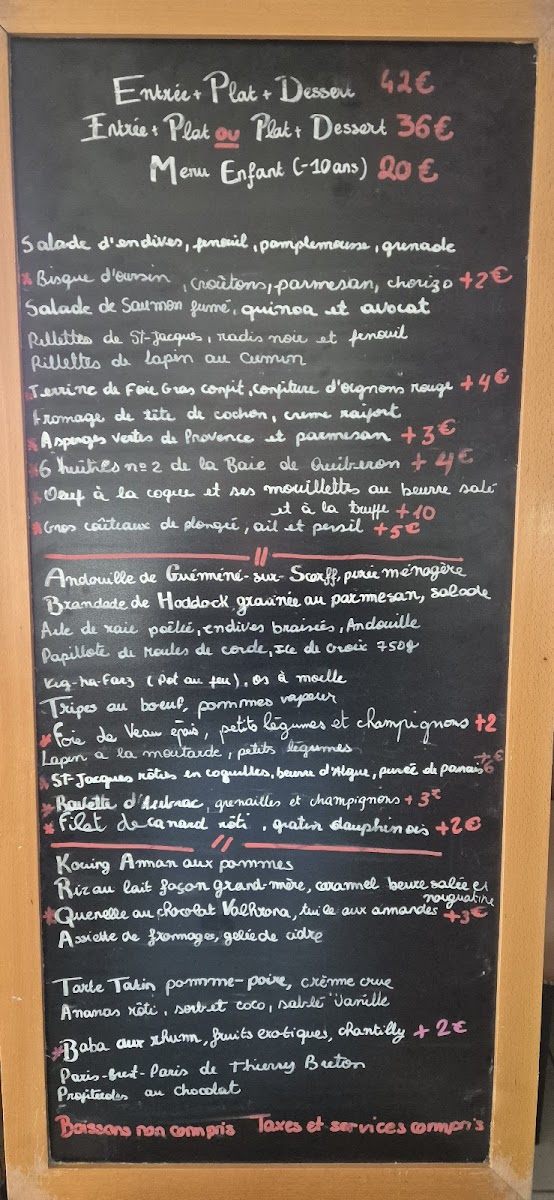 Entrée + Plat + Dessert 42€
Entrée + Plat ou Plat + Dessert 36€
Menu Enfant (-10ans) 20€
Salade d'endives, fenouil, pamplemousse, grenade
* Bisque d'oursin, croûtons, parmesan, chorizo +2€
Salade de Saumon fumé, quinoa et avocat
Rillettes de St-Jacques, radis noir et fenouil
Rillettes de lapin au Cumin
* Terrine de Foie Gras confit, confiture d'oignons rouge +4€
Fromage de tête de cochon, crème raifort
* Asperges vertes de Provence et parmesan +3€
* 6 huîtres n°2 de la Baie de Quiberon + 4€
* Oeuf à la coque et ses mouillettes au beurre salé
et à la truffe +10
* Gros coûteaux de plongée, ail et persil +5€
//
Andouille de Guémené-sur-Scorff, purée ménagère
Brandade de Haddock gratinée au parmesan, salade
Aile de raie poêlée, endives braisées, Andouille
Papillote de Moules de corde, Ile de Groix 750g
Kig-ha-Farz (Pot au feu), os à moelle
Tripes au boeuf, pommes vapeur
* Foie de Veau épais, petits légumes et champignons +2
Lapin à la moutarde, petits légumes
* St-Jacques rôties en coquilles, beurre d'Algue, purée de panais +6€
* Bavette d'Aubrac, grenailles et champignons + 3€
* Filet de canard rôti, gratin dauphinois +2€
//
Kouing Aman aux pommes
Riz au lait façon grand-mère, caramel beurre salée et
nougatine
* Quenelle au chocolat Valhrona, tuile aux amandes +3€
Assiette de fromages, gelée de cidre
Tarte Tatin pomme-poire, crème crue
Ananas rôti, sorbet coco, sablé vanille
* Baba aux rhum, fruits exotiques, chantilly + 2€
Paris-Brest-Paris de Thierry Breton
Profiteroles au chocolat
Boissons non compris Taxes et services compris